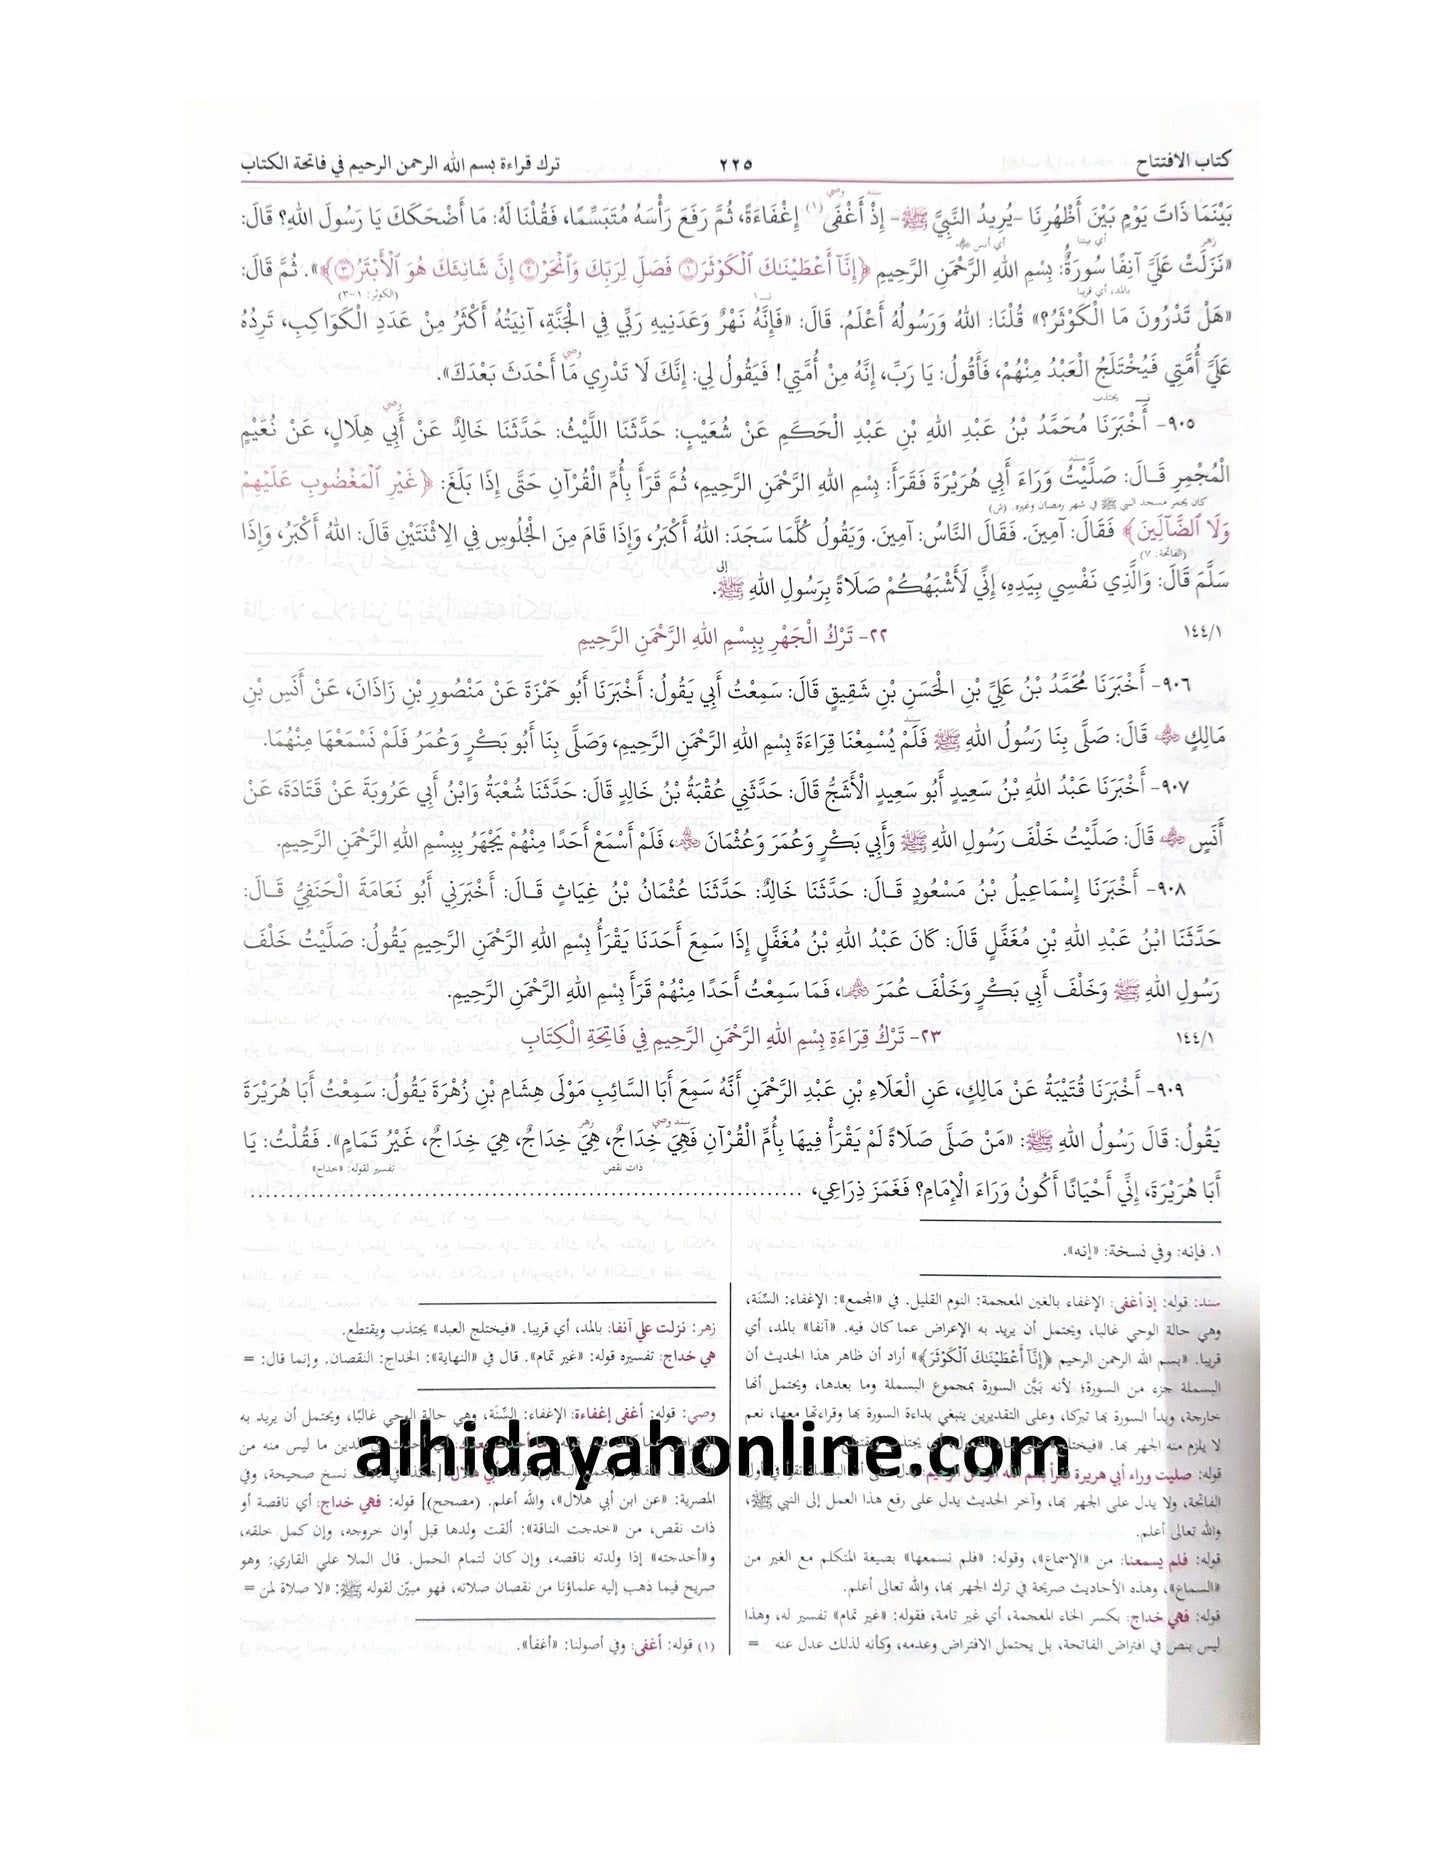 كتاب الافتتاح ٢٢٥ ترك قراءة بسم الله الرحمن الرحيم في فاتحة الكتاب
بَيْنَمَا ذَاتَ يَوْمٍ بَيْنَ أَظْهُرِنَا -يُرِيدُ النَّبِيَّ ﷺ- إِذْ أَغْفَى(١) إِغْفَاءَةً، ثُمَّ رَفَعَ رَأْسَهُ مُتَبَسِّمًا، فَقُلْنَا لَهُ: مَا أَضْحَكَكَ يَا رَسُولَ اللهِ؟ قَالَ:
«نَزَلَتْ عَلَيَّ آنِفًا سُورَةٌ: بِسْمِ اللهِ الرَّحْمَنِ الرَّحِيمِ ﴿إِنَّآ أَعْطَيْنَٰكَ ٱلْكَوْثَرَ ۝١ فَصَلِّ لِرَبِّكَ وَٱنْحَرْ ۝٢ إِنَّ شَانِئَكَ هُوَ ٱلْأَبْتَرُ ۝٣﴾». ثُمَّ قَالَ:
بالمد، أي قريبا (الكوثر: ١-٣)
«هَلْ تَدْرُونَ مَا الْكَوْثَرُ؟» قُلْنَا: اللهُ وَرَسُولُهُ أَعْلَمُ. قَالَ: «فَإِنَّهُ نَهْرٌ وَعَدَنِيهِ رَبِّي فِي الْجَنَّةِ، آنِيَتُهُ أَكْثَرُ مِنْ عَدَدِ الْكَوَاكِبِ، تَرِدُهُ
عَلَيَّ أُمَّتِي فَيُخْتَلَجُ الْعَبْدُ مِنْهُمْ، فَأَقُولُ: يَا رَبِّ، إِنَّهُ مِنْ أُمَّتِي! فَيَقُولُ لِي: إِنَّكَ لَا تَدْرِي مَا أَحْدَثَ بَعْدَكَ».
يجتذب
٩٠٥- أَخْبَرَنَا مُحَمَّدُ بْنُ عَبْدِ اللهِ بْنِ عَبْدِ الْحَكَمِ عَنْ شُعَيْبٍ: حَدَّثَنَا اللَّيْثُ: حَدَّثَنَا خَالِدٌ عَنْ أَبِي هِلَالٍ، عَنْ نُعَيْمٍ
الْمُجْمِرِ قَالَ: صَلَّيْتُ وَرَاءَ أَبِي هُرَيْرَةَ فَقَرَأَ: بِسْمِ اللهِ الرَّحْمَنِ الرَّحِيمِ، ثُمَّ قَرَأَ بِأُمِّ الْقُرْآنِ حَتَّى إِذَا بَلَغَ: ﴿غَيْرِ ٱلْمَغْضُوبِ عَلَيْهِمْ
كان يجمر مسجد النبي ﷺ في شهر رمضان وغيره. (ش)
وَلَا ٱلضَّآلِّينَ﴾ فَقَالَ: آمِينَ. فَقَالَ النَّاسُ: آمِينَ. وَيَقُولُ كُلَّمَا سَجَدَ: اللهُ أَكْبَرُ، وَإِذَا قَامَ مِنَ الْجُلُوسِ فِي الِاثْنَتَيْنِ قَالَ: اللهُ أَكْبَرُ، وَإِذَا
(الفاتحة: ٧)
سَلَّمَ قَالَ: وَالَّذِي نَفْسِي بِيَدِهِ، إِنِّي لَأَشْبَهُكُمْ صَلَاةً بِرَسُولِ اللهِ ﷺ.
١٤٤/١ ٢٢- تَرْكُ الْجَهْرِ بِبِسْمِ اللهِ الرَّحْمَنِ الرَّحِيمِ
٩٠٦- أَخْبَرَنَا مُحَمَّدُ بْنُ عَلِيِّ بْنِ الْحَسَنِ بْنِ شَقِيقٍ قَالَ: سَمِعْتُ أَبِي يَقُولُ: أَخْبَرَنَا أَبُو حَمْزَةَ عَنْ مَنْصُورِ بْنِ زَاذَانَ، عَنْ أَنَسِ بْنِ
مَالِكٍ ﵁ قَالَ: صَلَّى بِنَا رَسُولُ اللهِ ﷺ فَلَمْ يُسْمِعْنَا قِرَاءَةَ بِسْمِ اللهِ الرَّحْمَنِ الرَّحِيمِ، وَصَلَّى بِنَا أَبُو بَكْرٍ وَعُمَرُ فَلَمْ نَسْمَعْهَا مِنْهُمَا.
٩٠٧- أَخْبَرَنَا عَبْدُ اللهِ بْنُ سَعِيدٍ أَبُو سَعِيدٍ الْأَشَجُّ قَالَ: حَدَّثَنِي عُقْبَةُ بْنُ خَالِدٍ قَالَ: حَدَّثَنَا شُعْبَةُ وَابْنُ أَبِي عَرُوبَةَ عَنْ قَتَادَةَ، عَنْ
أَنَسٍ ﵁ قَالَ: صَلَّيْتُ خَلْفَ رَسُولِ اللهِ ﷺ وَأَبِي بَكْرٍ وَعُمَرَ وَعُثْمَانَ ﵃، فَلَمْ أَسْمَعْ أَحَدًا مِنْهُمْ يَجْهَرُ بِبِسْمِ اللهِ الرَّحْمَنِ الرَّحِيمِ.
٩٠٨- أَخْبَرَنَا إِسْمَاعِيلُ بْنُ مَسْعُودٍ قَالَ: حَدَّثَنَا خَالِدٌ: حَدَّثَنَا عُثْمَانُ بْنُ غِيَاثٍ قَالَ: أَخْبَرَنِي أَبُو نَعَامَةَ الْحَنَفِيُّ قَالَ:
حَدَّثَنَا ابْنُ عَبْدِ اللهِ بْنِ مُغَفَّلٍ قَالَ: كَانَ عَبْدُ اللهِ بْنُ مُغَفَّلٍ إِذَا سَمِعَ أَحَدَنَا يَقْرَأُ بِسْمِ اللهِ الرَّحْمَنِ الرَّحِيمِ يَقُولُ: صَلَّيْتُ خَلْفَ
رَسُولِ اللهِ ﷺ وَخَلْفَ أَبِي بَكْرٍ وَخَلْفَ عُمَرَ ﵄، فَمَا سَمِعْتُ أَحَدًا مِنْهُمْ قَرَأَ بِسْمِ اللهِ الرَّحْمَنِ الرَّحِيمِ.
١٤٤/١ ٢٣- تَرْكُ قِرَاءَةِ بِسْمِ اللهِ الرَّحْمَنِ الرَّحِيمِ فِي فَاتِحَةِ الْكِتَابِ
٩٠٩- أَخْبَرَنَا قُتَيْبَةُ عَنْ مَالِكٍ، عَنِ الْعَلَاءِ بْنِ عَبْدِ الرَّحْمَنِ أَنَّهُ سَمِعَ أَبَا السَّائِبِ مَوْلَى هِشَامِ بْنِ زُهْرَةَ يَقُولُ: سَمِعْتُ أَبَا هُرَيْرَةَ
يَقُولُ: قَالَ رَسُولُ اللهِ ﷺ: «مَنْ صَلَّى صَلَاةً لَمْ يَقْرَأْ فِيهَا بِأُمِّ الْقُرْآنِ فَهِيَ خِدَاجٌ، هِيَ خِدَاجٌ، هِيَ خِدَاجٌ، غَيْرُ تَمَامٍ». فَقُلْتُ: يَا
ذات نقص تفسير لقوله: «خداج»
أَبَا هُرَيْرَةَ، إِنِّي أَحْيَانًا أَكُونُ وَرَاءَ الْإِمَامِ؟ فَغَمَزَ ذِرَاعِي، ............
١. فإنه: وفي نسخة: «إنه».
سند: قوله: إذ أغفى: الإغفاء بالغين المعجمة: النوم القليل. في «المجمع»: الإغفاء: السِّنَة،
وهي حالة الوحي غالبا، ويحتمل أن يريد به الإعراض عما كان فيه. «آنفا» بالمد، أي
قريبا. «بسم الله الرحمن الرحيم ﴿إِنَّآ أَعْطَيْنَٰكَ ٱلْكَوْثَرَ﴾» أراد أن ظاهر هذا الحديث أن
البسملة جزء من السورة؛ لأنه بَيَّن السورة بمجموع البسملة وما بعدها، ويحتمل أنها
خارجة، وبدأ السورة بها تبركا، وعلى التقديرين ينبغي بداءة السورة بها وقراءتها معها، نعم
لا يلزم منه الجهر بها. «فيختلج»
قوله: صليت وراء أبي هريرة فقرأ بسم الله الرحمن الرحيم: يدل على أن البسملة تقرأ في أول
الفاتحة، ولا يدل على الجهر بها، وآخر الحديث يدل على رفع هذا العمل إلى النبي ﷺ،
والله تعالى أعلم.
قوله: فلم يسمعنا: من «الإسماع»، وقوله: «فلم نسمعها» بصيغة المتكلم مع الغير من
«السماع»، وهذه الأحاديث صريحة في ترك الجهر بها، والله تعالى أعلم.
قوله: فهي خداج: بكسر الخاء المعجمة، أي غير تامة، فقوله: «غير تمام» تفسير له، وهذا
ليس بنص في افتراض الفاتحة، بل يحتمل الافتراض وعدمه، وكأنه لذلك عدل عنه =
زهر: نزلت علي آنفا: بالمد، أي قريبا. «فيختلج العبد» يجتذب ويقتطع.
هي خداج: تفسيره قوله: «غير تمام». قال في «النهاية»: الخداج: النقصان. وإنما قال: =
وصي: قوله: أغفى إغفاءة: الإغفاء: السِّنَة، وهي حالة الوحي غالبًا، ويحتمل أن يريد به
المصرية: «عن ابن أبي هلال»، والله أعلم. (مصحح)] قوله: فهي خداج: أي ناقصة أو
ذات نقص، من «خدجت الناقة»: ألقت ولدها قبل أوان خروجه، وإن كمل خلقه،
و«أخدجته» إذا ولدته ناقصه، وإن كان لتمام الحمل. قال الملا علي القاري: وهو
صريح فيما ذهب إليه علماؤنا من نقصان صلاته، فهو مبيّن لقوله ﷺ: «لا صلاة لمن =
(١) قوله: أغفى: وفي أصولنا: «أغفأ».
alhidayahonline.com